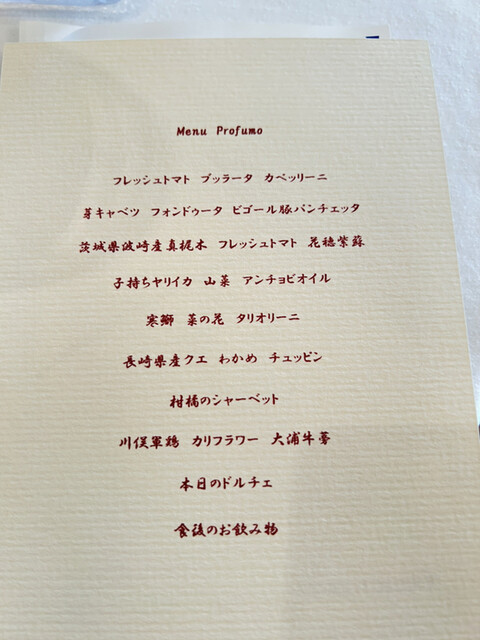 Menu Profumo
フレッシュトマト ブッラータ カペッリーニ
芽キャベツ フォンドゥータ ビゴール豚パンチェッタ
茨城県波崎産真梶木 フレッシュトマト 花穂紫蘇
子持ちヤリイカ 山菜 アンチョビオイル
寒鰤 菜の花 タリオリーニ
長崎県産クエ わかめ チュッピン
柑橘のシャーベット
川俣軍鶏 カリフラワー 大浦牛蒡
本日のドルチェ
食後のお飲み物